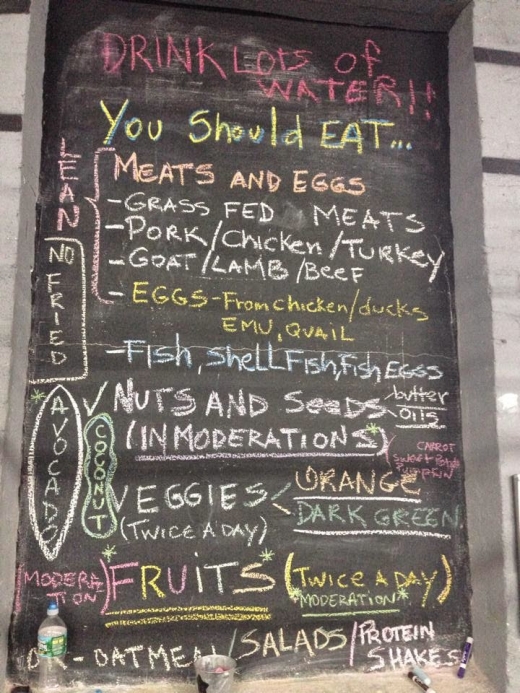 DRINK LOTS OF
WATER!!
You Should EAT...
LEAN
MEATS AND EGGS
-GRASS FED MEATS
-PORK/Chicken/TURKEY
-GOAT/LAMB/BEEF
- EGGS-From Chicken/ducks
EMU, QUAIL
NO FRIED
-FISH, Shell Fish, Fish EGGS
*AVOCADO
COCONUT*
✓ NUTS AND SeeDS butter
oils
(IN MODERATIONS*)
CARROT
Sweet Potato
PUMPKIN
VEGGIES < ORANGE
DARK GREEN
(TWICE A DAY)
(MODERATION) FRUITS* (TWICE A DAY)
*MODERATION*
OK - OATMEAL/SALADS/PROTEIN
SHAKES